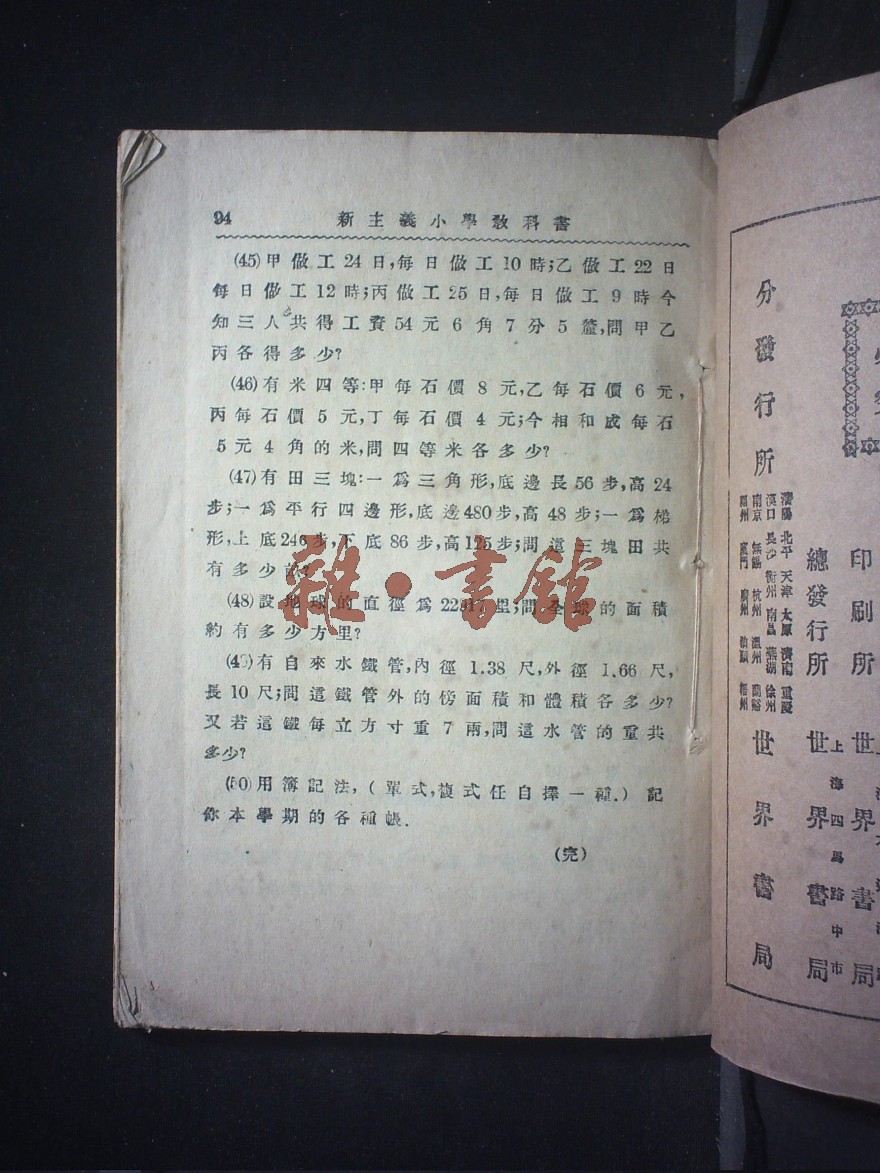 94 新主義小學教科書
(45)甲做工24日,每日做工10時;乙做工22日
每日做工12時;丙做工25日,每日做工9時今
知三人共得工資54元6角7分5釐,問甲乙
丙各得多少?
(46)有米四等:甲每石價8元,乙每石價6元,
丙每石價5元,丁每石價4元;今相和成每石
5元4角的米,問四等米各多少?
(47)有田三塊:一爲三角形,底邊長56步,高24
步;一爲平行四邊形,底邊480步,高48步;一爲梯
形,上底246步,下底86步,高125步;問這三塊田共
有多少畝?
(48)設地球的直徑爲里;問全球的面積
約有多少方里?
(49)有自來水鐵管,內徑1.38尺,外徑1.66尺,
長10尺;問這鐵管外的傍面積和體積各多少?
又若這鐵每立方寸重7兩,問這水管的重共
多少?
(50)用簿記法,(單式,複式任自擇一種.)記
你本學期的各種帳.
(完)
雜·書館
印刷所 世界書局
總發行所 上海四馬路中市 世界書局
分發行所
瀋陽 北平 天津 太原 濟南 重慶
漢口 長沙 衡州 南昌 蕪湖 徐州
南京 無錫 杭州 溫州 蘭谿
廈門 廣州 梧州
世界書局